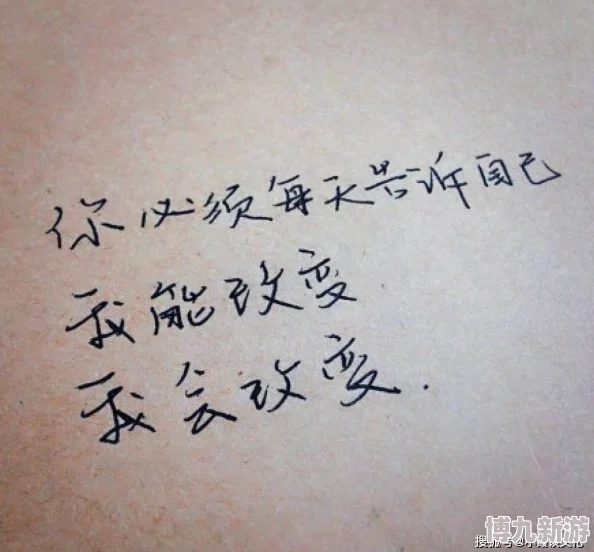 你必须每天告诉自己
我能改变
我会改变.
博九新游